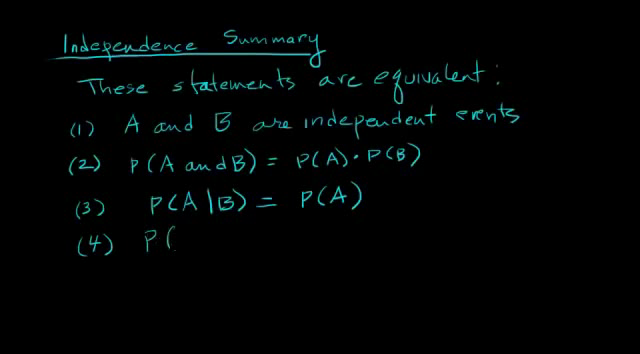 Independence Summary
These statements are equivalent:
(1) A and B are independent events
(2) P(A and B) = P(A) · P(B)
(3) P(A|B) = P(A)
(4) P(